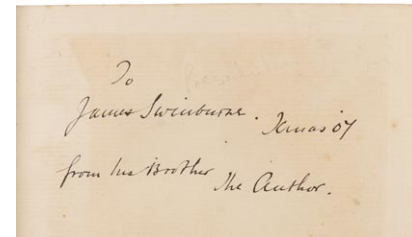 To
James Swinburne. Xmas '07
from his Brother
The Author.